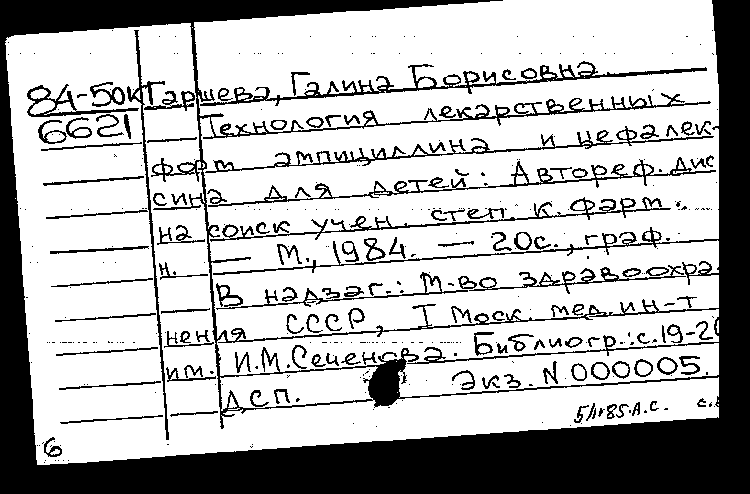 84-50к Гаршева, Галина Борисовна
6621 Технология лекарственных
форм ампициллина и цефалек-
сина для детей: Автореф. дис
на соиск учен. степ. к. фарм.
н. — М., 1984. — 20с., граф.
В надзаг.: М-во здравоохра-
нения СССР, I Моск. мед. ин-т
им. И.М.Сеченова. Библиогр.: с.19-20
ДСП. Экз. N 000005.
6